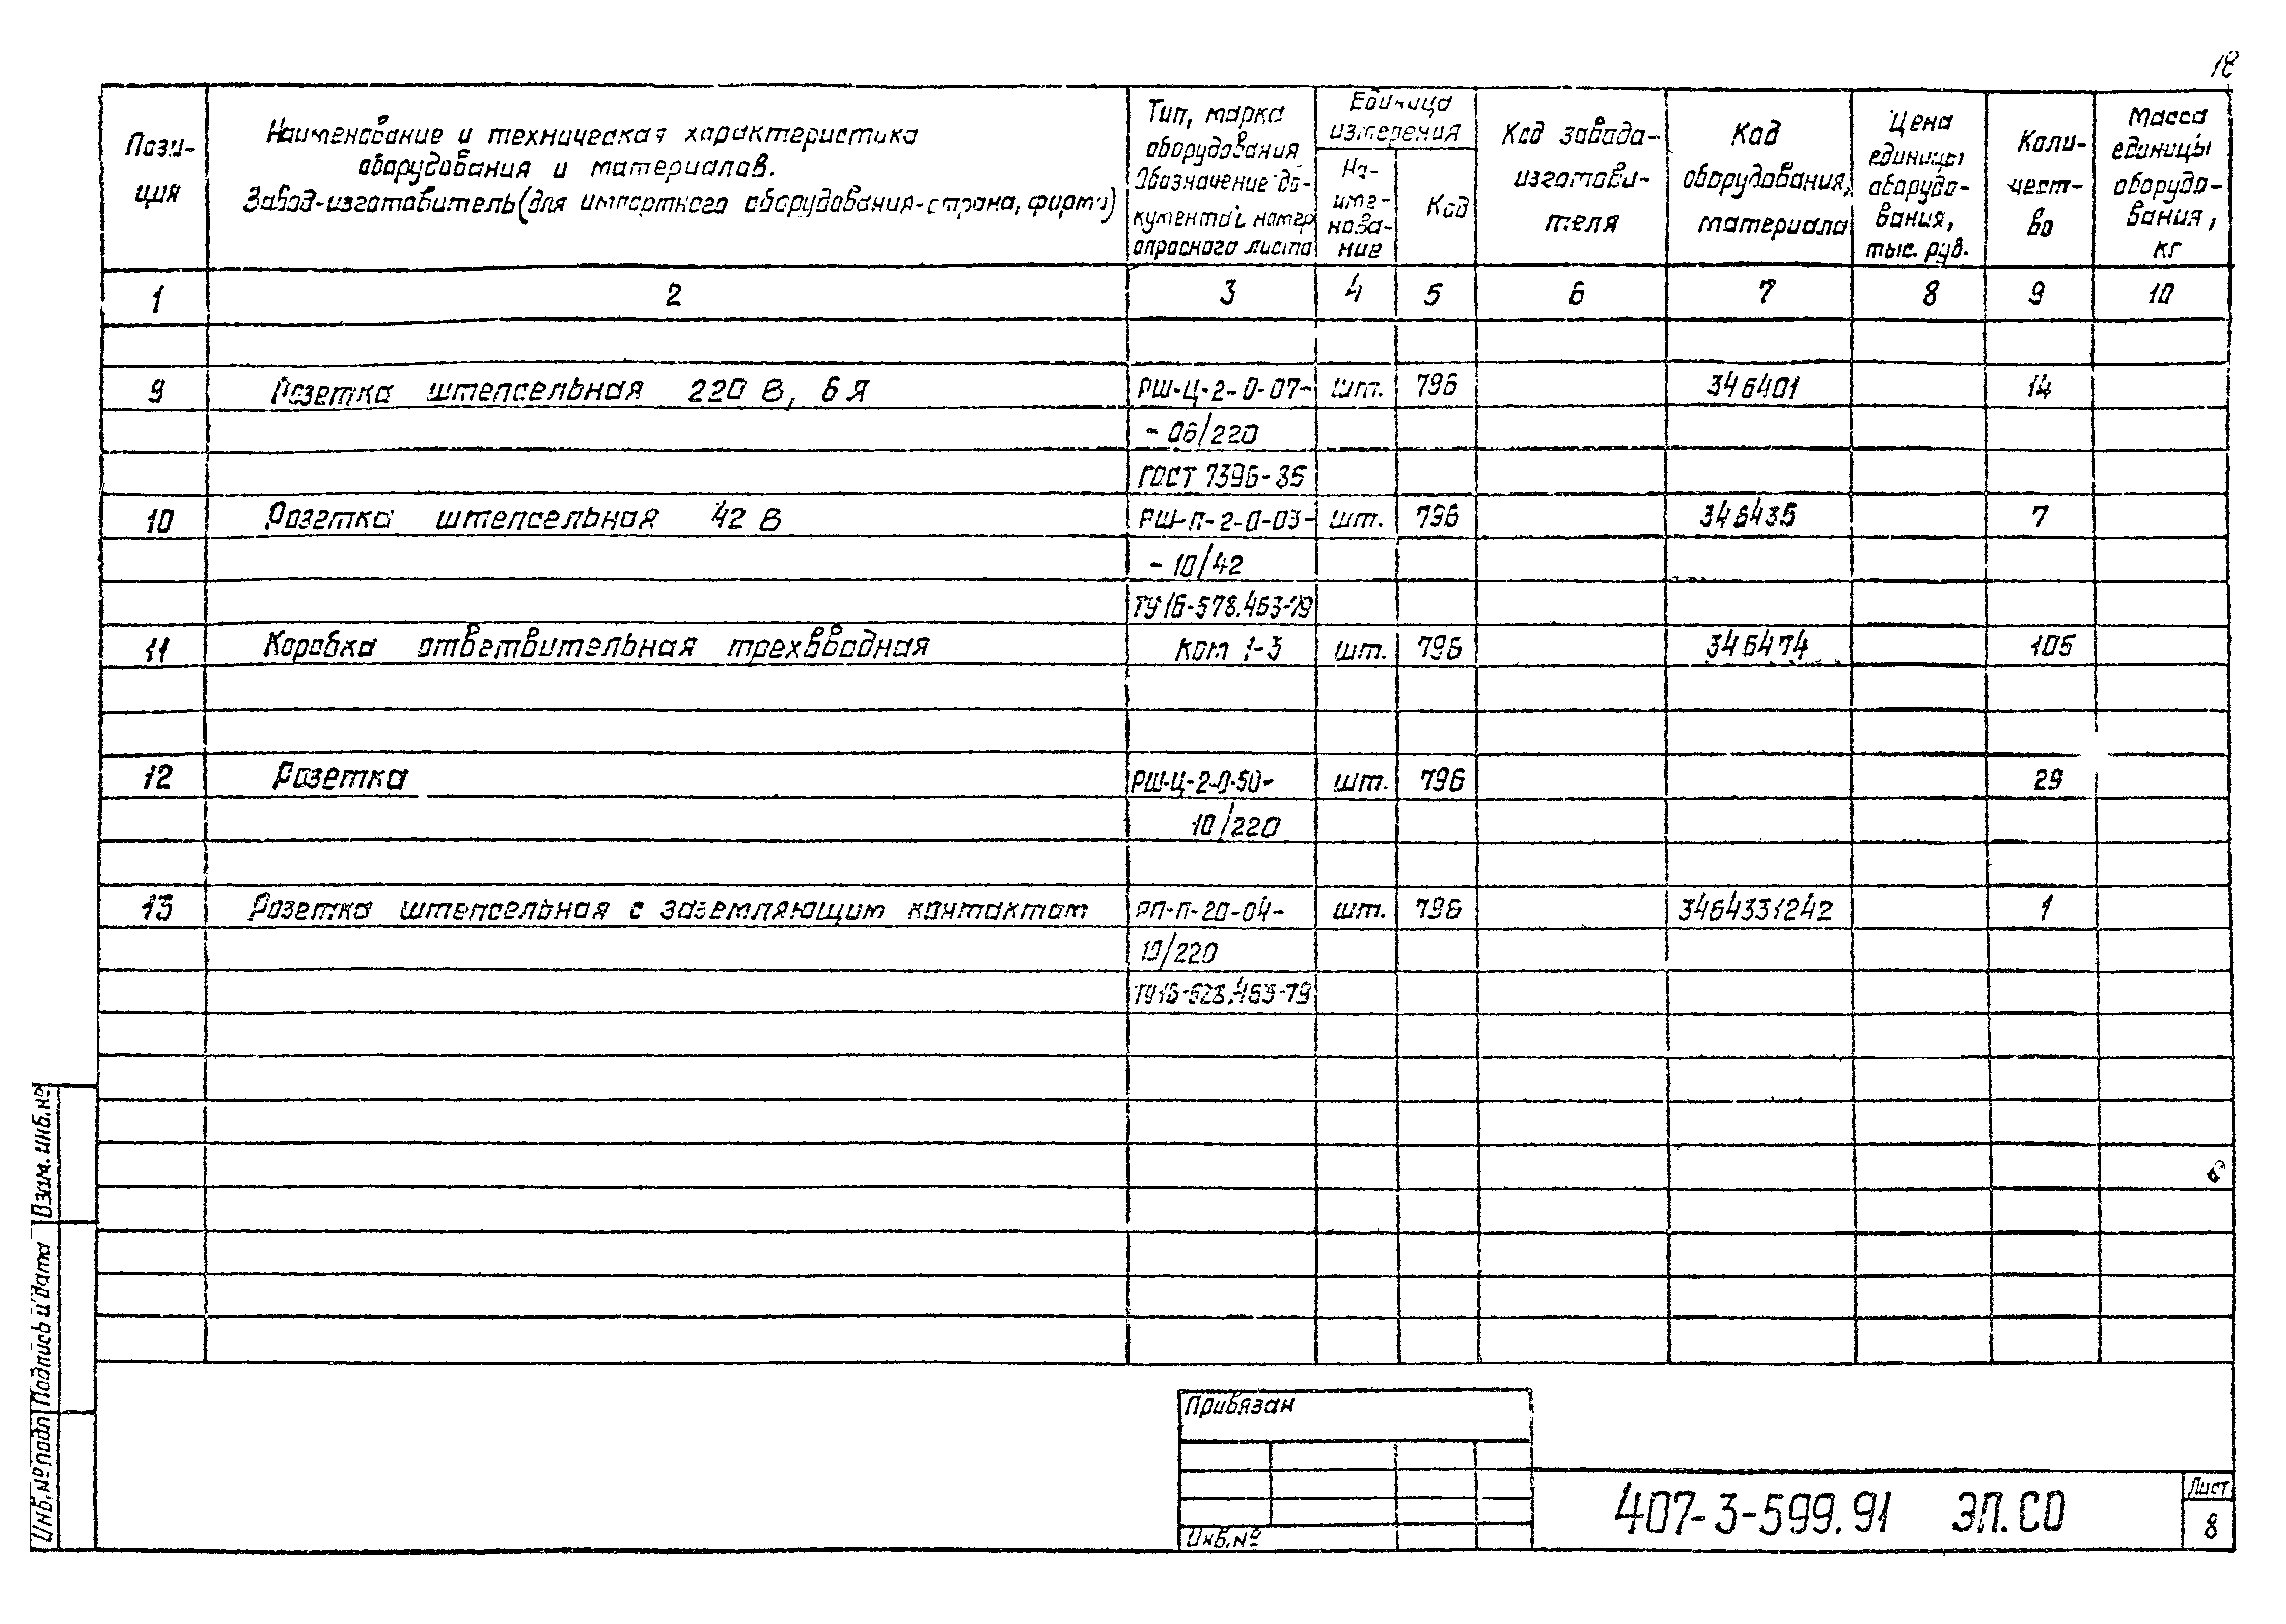 18
Пози-
ция
Наименование и техническая характеристика
оборудования и материалов.
Завод-изготовитель (для импортного оборудования-страна, фирма)
Тип, марка
оборудования
Обозначение до-
кумента и номер
опросного листа
Единица
измерения
На-
име-
нова-
ние
Код
Код завода-
изготови-
теля
Код
оборудования,
материала
Цена
единицы
оборудо-
вания,
тыс. руб.
Коли-
чест-
во
Масса
единицы
оборудо-
вания,
кг
1 2 3 4 5 6 7 8 9 10
9 Розетка штепсельная 220 В, 6 А РШ-Ц-2-0-07- шт. 796 346401 14
- 06/220
ГОСТ 7396-85
10 Розетка штепсельная 42 В РШ-П-2-0-03- шт. 796 346435 7
- 10/42
ТУ16-578.463-79
11 Коробка ответвительная трехвводная Ком 1-3 шт. 796 346474 105
12 Розетка РШ-Ц-2-0-50- шт. 796 29
10/220
13 Розетка штепсельная с заземляющим контактом РП-П-20-04- шт. 796 3464331242 1
10/220
ТУ16-528.463-79
Взам. инв. №
Подпись и дата
Инв. № подл
Привязан
Инв. №
407-3-599.91 ЭП.СО
Лист
8